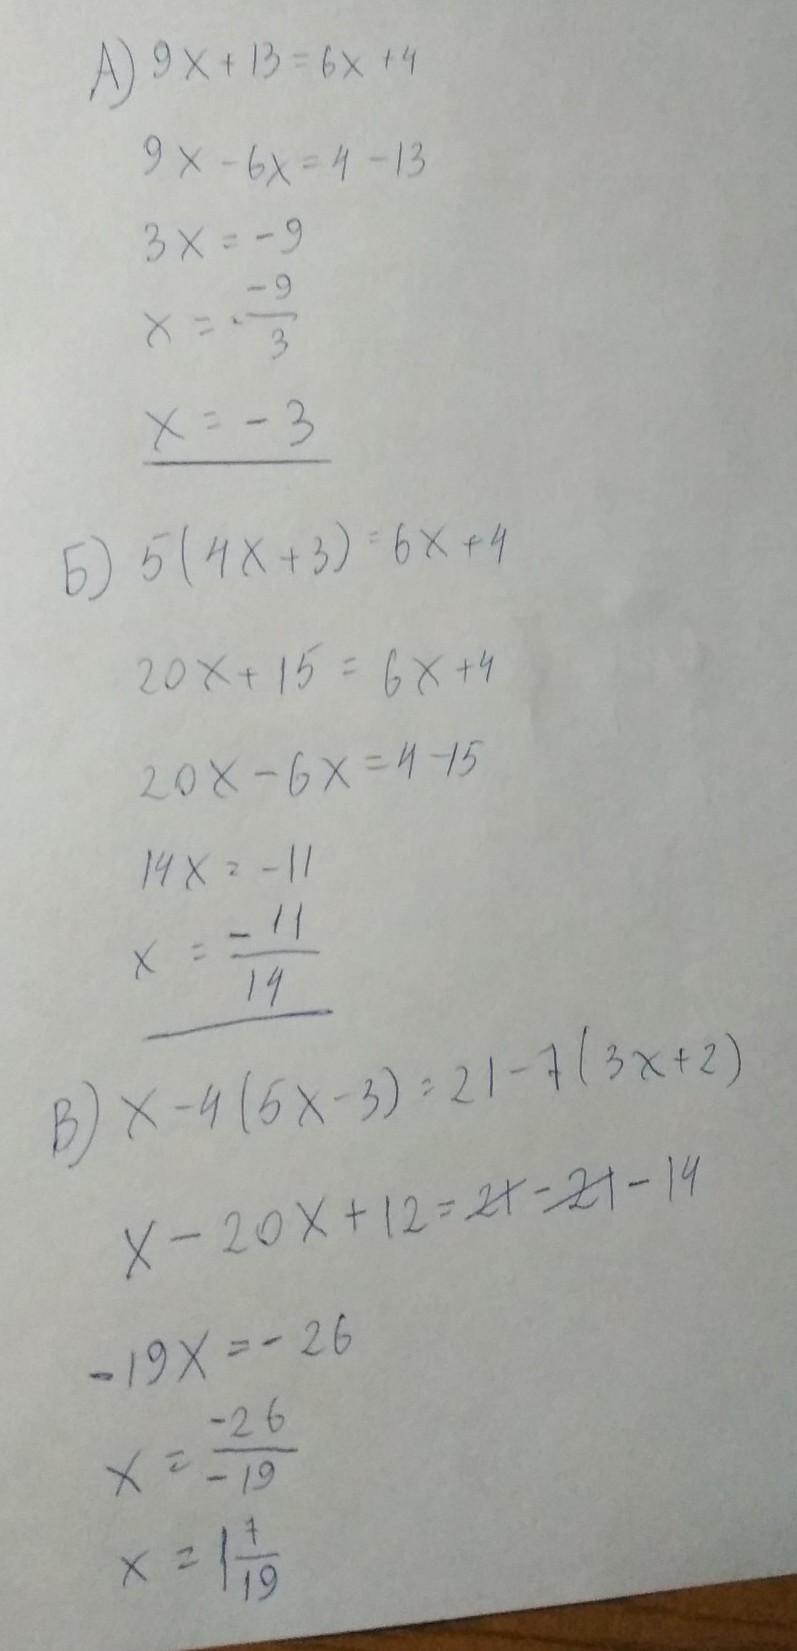 А) 9x + 13 = 6x + 4
9x - 6x = 4 - 13
3x = -9
x = -9/3
x = -3
Б) 5(4x + 3) = 6x + 4
20x + 15 = 6x + 4
20x - 6x = 4 - 15
14x = -11
x = -11/14
В) x - 4(5x - 3) = 21 - 7(3x + 2)
x - 20x + 12 = 21 - 21 - 14
-19x = -26
x = -26/-19
x = 1 7/19